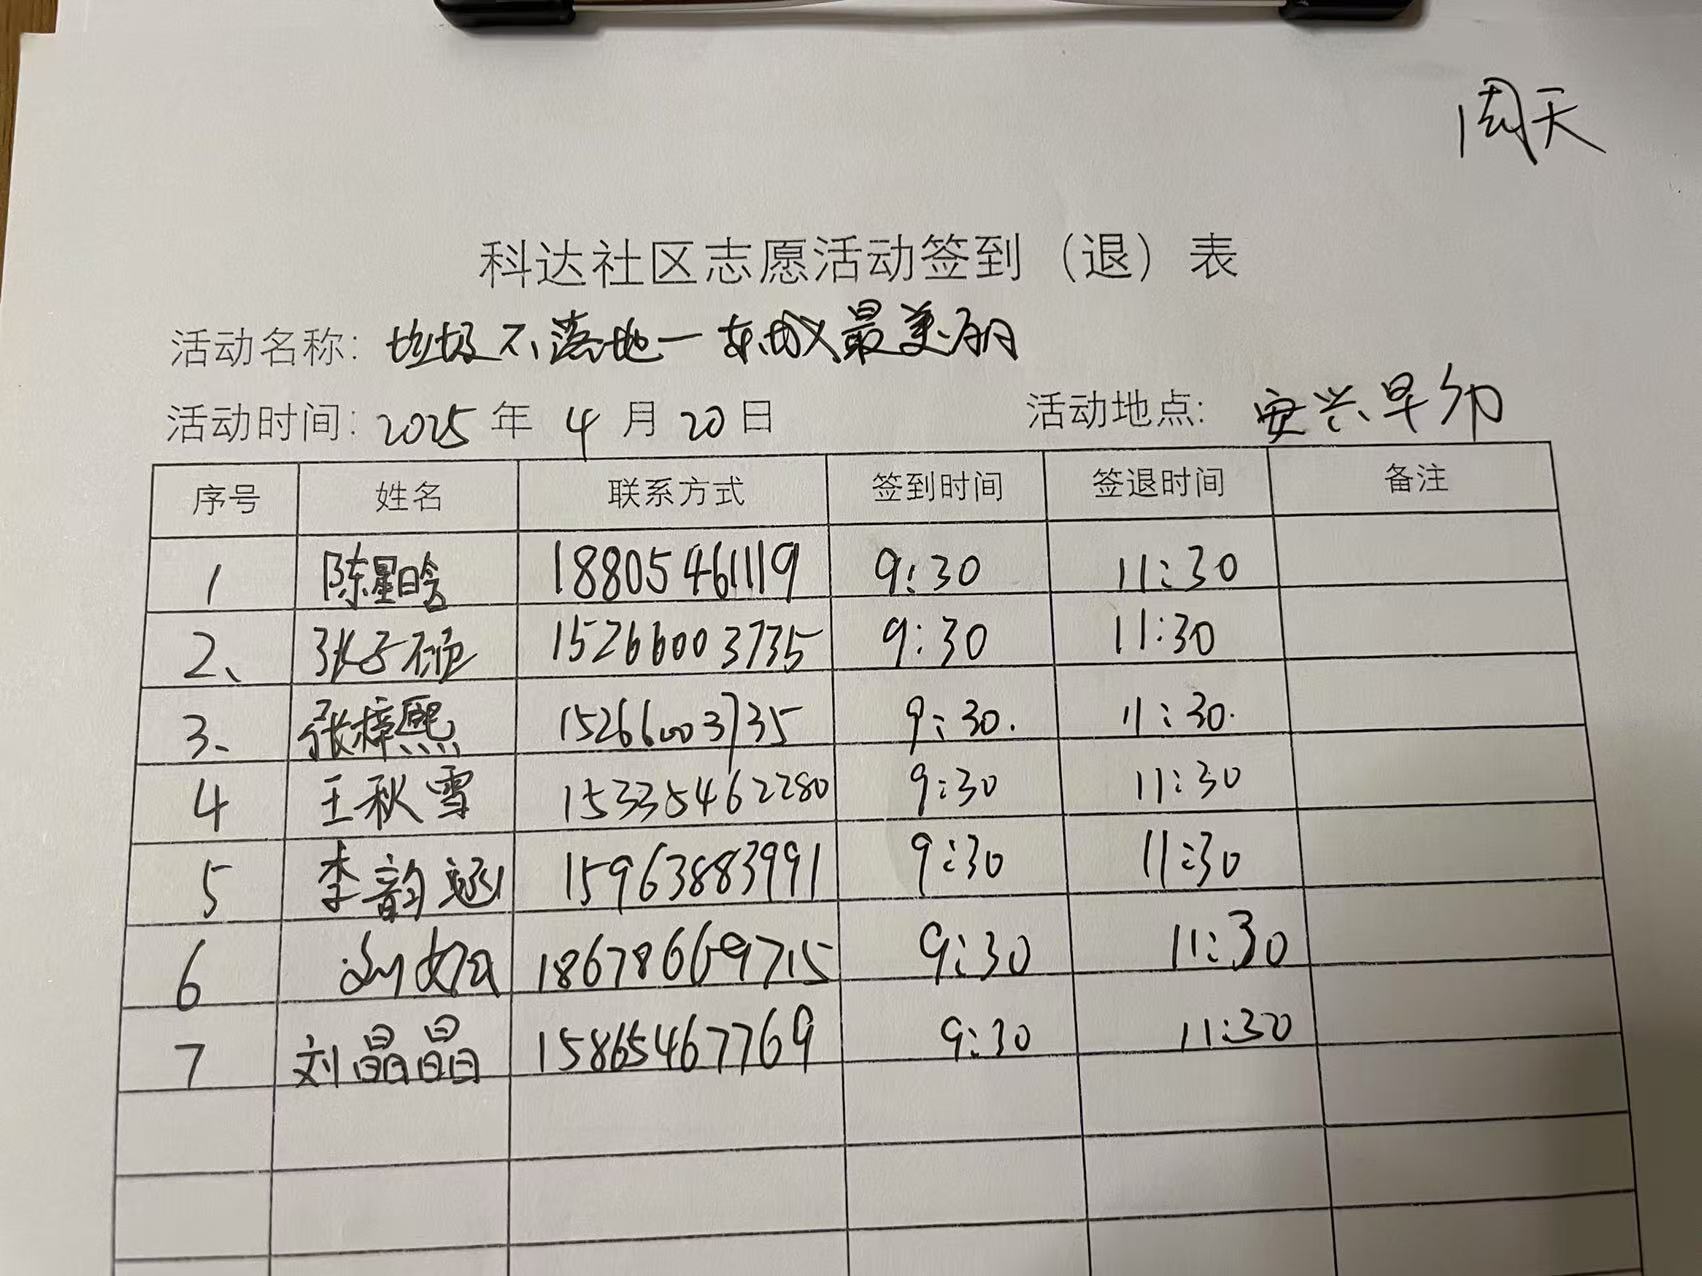 周天
科达社区志愿活动签到（退）表
活动名称: 垃圾不落地一东城最美丽
活动时间: 2025 年 4 月 20 日 活动地点: 安兴早市
序号 姓名 联系方式 签到时间 签退时间 备注
1 陈星晗 18805461119 9:30 11:30
2、 张子硕 15266003735 9:30 11:30
3、 张梓熙 15266003735 9:30. 11:30.
4 王秋雪 15335462280 9:30 11:30
5 李韵涵 15963883991 9:30 11:30
6 刘 18678669715 9:30 11:30
7 刘晶晶 15865467769 9:30 11:30